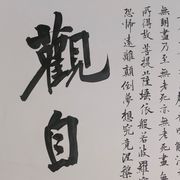 無明盡乃至無老死亦無老死盡無
所得故菩提薩埵依般若波羅
恐怖遠離顛倒夢想究竟涅槃
觀自